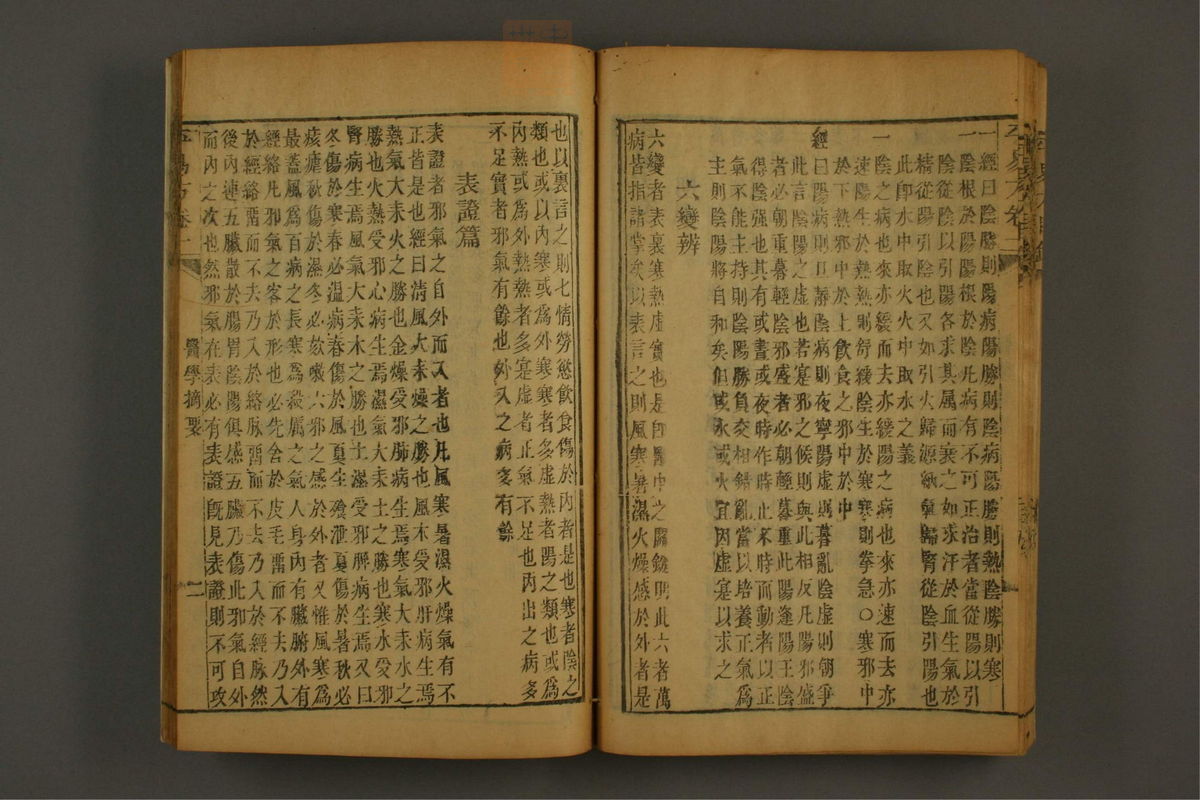 一經曰陰勝則陽病陽勝則陰病陽勝則熱陰勝則寒
陰根於陽陽根於陰凡病有不可正治者當從陽以引
陰從陰以引陽各求其屬而衰之如求汗於血生氣於
精從陽引陰也又如引火歸源納氣歸腎從陰引陽也
此卽水中取火火中取水之義
一陰之病也來亦緩而去亦緩陽之病也來亦速而去亦
速陽生於熱熱則舒緩陰生於寒寒則拳急○寒邪中
於下熱邪中於上飲食之邪中於中
經曰陽病則旦靜陰病則夜寧陽虛則暮亂陰虛則朝爭
此言陰陽之虛也若寔邪之候則與此相反凡陽邪盛
者必朝重暮輕陰邪盛者必朝輕暮重此陽逢陽王陰
得陰强也其有或晝或夜時作時止不時而動者以正
氣不能主持則陰陽勝負交相錯亂當以培養正氣爲
主則陰陽將自和矣但或水或火宜因虛寔以求之
六變辨
六變者表裏寒熱虛實也是卽醫中之關鍵明此六者萬
病皆指諸掌矣以表言之則風寒暑濕火燥感於外者是
也以裏言之則七情勞慾飲食傷於內者是也寒者陰之
類也或以內寒或爲外寒寒者多虛熱者陽之類也或爲
內熱或爲外熱熱者多寔虛者正氣不足也內出之病多
不足實者邪氣有餘也外入之病多有餘
表證篇
表證者邪氣之自外而入者也凡風寒暑濕火燥氣有不
正皆是也經曰淸風大來燥之勝也風木受邪肝病生焉
熱氣大來火之勝也金燥受邪肺病生焉寒氣大來水之
勝也火熱受邪心病生焉濕氣大來土之勝也寒水受邪
腎病生焉風氣大來木之勝也土濕受邪脾病生焉又曰
冬傷於寒春必溫病春傷於風夏生飧泄夏傷於暑秋必
痎瘧秋傷於濕冬必欬嗽六邪之感於外者又惟風寒爲
最蓋風爲百病之長寒爲殺厲之氣人身內有臟腑外有
經絡凡邪氣之客於形也必先舍於皮毛留而不去乃入
於經絡留而不去乃入於絡脉留而不去乃入於經脉然
後內連五臟散於腸胃陰陽俱感五臟乃傷此邪氣自外
而內之次也然邪氣在表必有表證旣見表證則不可攻
醫學摘要
二